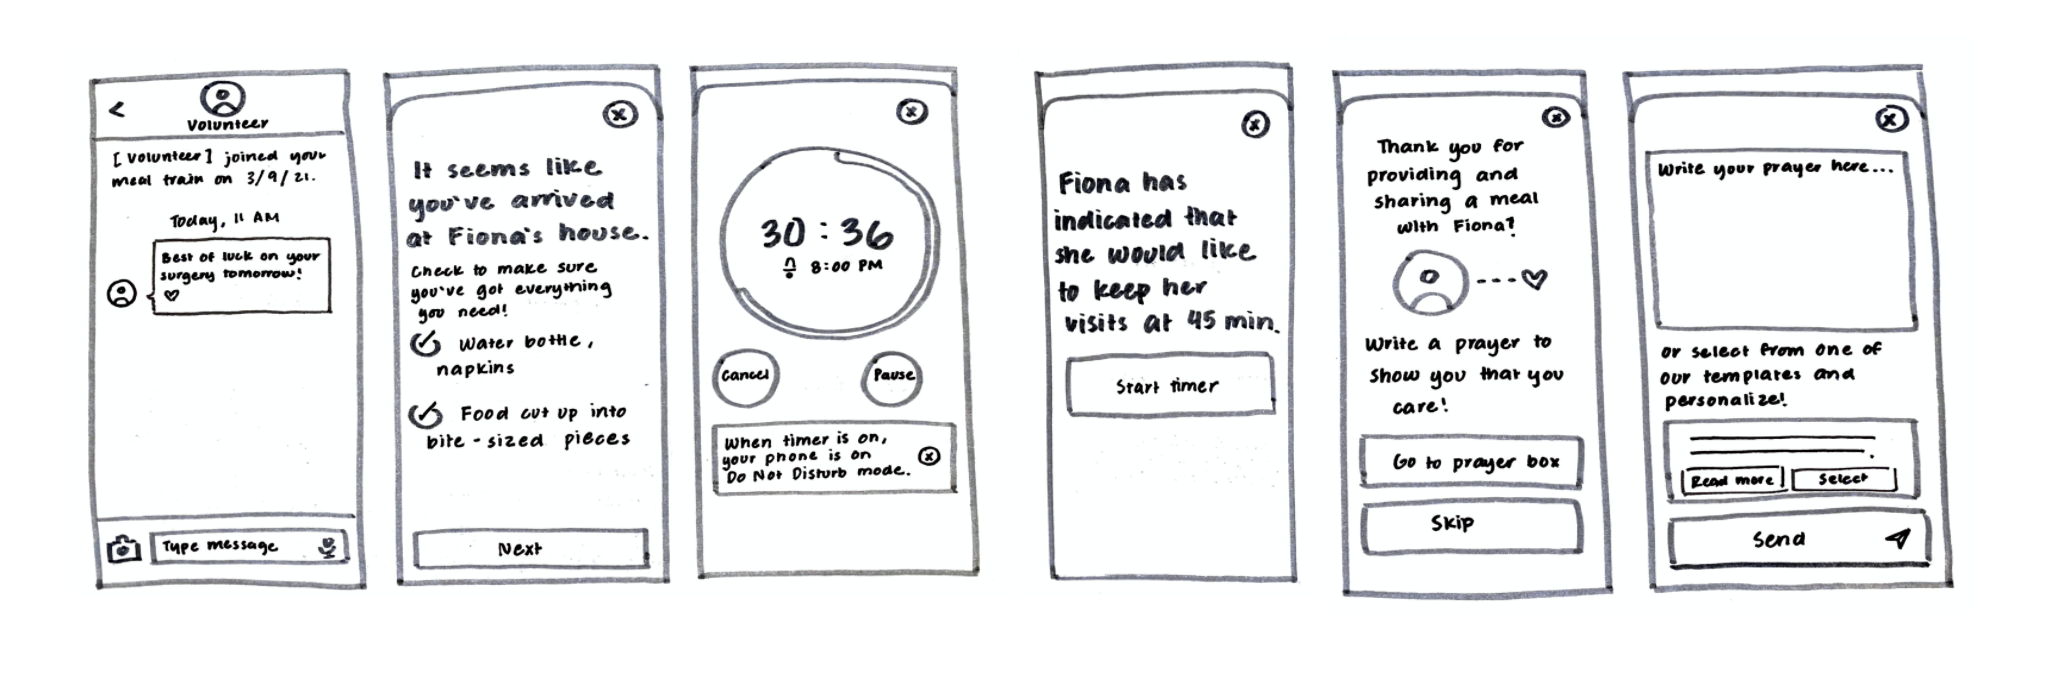 <
Volunteer
[Volunteer] joined your
meal train on 3/9/21.
Today, 11 AM
Best of luck on your
surgery tomorrow!
♡
Type message
x
It seems like
you've arrived
at Fiona's house.
Check to make sure
you've got everything
you need!
✓ Water bottle,
napkins
✓ Food cut up into
bite-sized pieces
Next
x
30:36
8:00 PM
Cancel
Pause
When timer is on,
your phone is on
Do Not Disturb mode.
x
x
Fiona has
indicated that
she would like
to keep her
visits at 45 min.
Start timer
x
Thank you for
providing and
sharing a meal
with Fiona!
Write a prayer to
show you that you
care!
Go to prayer box
Skip
x
Write your prayer here...
or select from one of
our templates and
personalize!
Read more
Select
Send